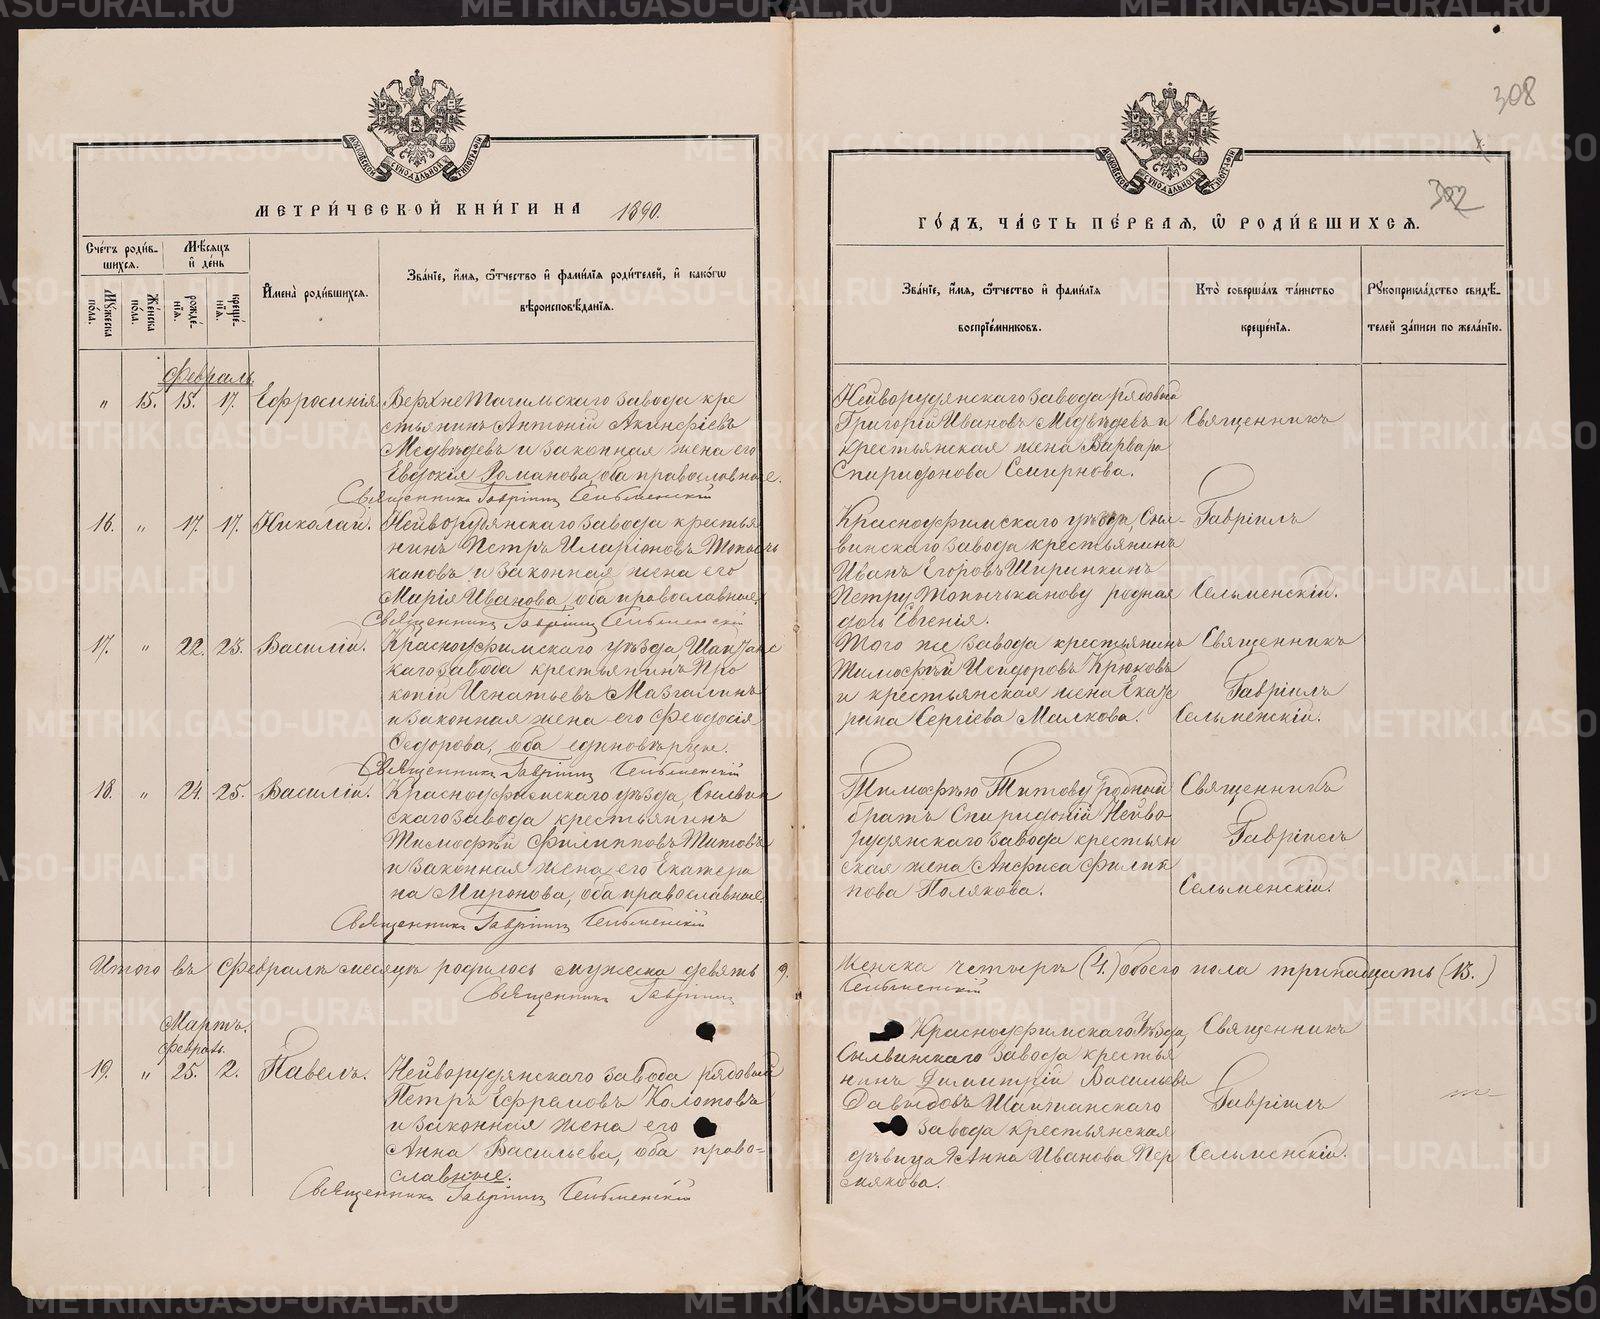 308
302
МОСКОВСКОЙ СѴНОДАЛЬНОЙ ТИПОГРАФІИ
МЕТРИ́ЧЕСКОЙ КНИ́ГИ НА 1890.
Сче́тъ роди́в-
шихся.
Мѣ́сяцъ
и҆ де́нь
Му́жеска по́ла.
Же́нска по́ла.
рожде́-
нїя.
креще́-
нїя.
И҆мена̀ роди́вшихся.
Зва́нїе, и҆́мя, ѻ҆́тчество и҆ фами́лїя роди́телей, и҆ како́гѡ
вѣроисповѣ́данїя.
Февраль
„ 15. 15. 17. Ефросинія.
ВерхнеТагильскаго завода кре
стьянинъ Антоній Акинфіевъ
Медвѣдевъ и законная жена его
Евдокія Романова, оба православные.
Священникъ Гавріилъ Сельменскій
16. „ 17. 17. Николай.
Нейворудянскаго завода крестья
нинъ Петръ Иларіоновъ Топыч
кановъ и законная жена его
Марія Иванова, оба православные.
Священникъ Гавріилъ Сельменскій
17. „ 22. 23. Василій.
Красноуфимскаго уѣзда, Шайтанс
каго завода крестьянинъ Про
копій Игнатьевъ Мазгалинъ
и законная жена его Феодосія
Федорова, оба единовѣрцы.
Священникъ Гавріилъ Сельменскій
18. „ 24. 25. Василій.
Красноуфимскаго уѣзда, Сылвин
скаго завода крестьянинъ
Тимофѣй Филипповъ Титовъ
и законная жена его Екатери
на Миронова, оба православные.
Священникъ Гавріилъ Сельменскій
Итого въ Февралѣ мѣсяцѣ родилось мужеска девять 9.
Священникъ Гавріилъ
Мартъ.
Февраль.
19. „ 25. 2. Павелъ.
Нейворудянскаго завода рядовой
Петръ Ефремовъ Колотовъ
и законная жена его
Анна Васильева, оба право-
славные.
Священникъ Гавріилъ Сельменскій
МОСКОВСКОЙ СѴНОДАЛЬНОЙ ТИПОГРАФІИ
ГО́ДЪ, ЧА́СТЬ ПЕ́РВАЯ, Ѡ҆ РОДИ́ВШИХСЯ.
Зва́нїе, и҆́мя, ѻ҆́тчество и҆ фами́лїя
воспрїе́мниковъ.
Кто̀ соверша́лъ та́инство
креще́нїя.
Рукоприкла́дство свидѣ́-
телей за́писи по жела́нїю.
Нейворудянскаго завода рядовой
Григорій Ивановъ Медвѣдевъ и
крестьянская жена Варвара
Спиридонова Смирнова.
Священникъ
Красноуфимскаго уѣзда, Сыл-
винскаго завода крестьянинъ
Иванъ Егоровъ Ширинкинъ
Петру Топычканову родная
дочь Евгенія.
Гавріилъ
Сельменскій.
Того же завода крестьянинъ
Тимофѣй Исидоровъ Крюковъ
и крестьянская жена Екате
рина Сергіева Малкова.
Священникъ
Гавріилъ
Сельменскій.
Тимофѣю Титову родной
братъ Спиридоній Нейво
рудянскаго завода крестьян
ская жена Анфиса Филип
пова Полякова.
Священникъ
Гавріилъ
Сельменскій.
женска четыре (4.) обоего пола тринадцать (13.)
Сельменскій
Красноуфимскаго уѣзда,
Сылвинскаго завода крестья
нинъ Димитрій Васильевъ
Давыдовъ Шайтанскаго
завода крестьянская
дѣвица Анна Иванова Пер
мякова.
Священникъ
Гавріилъ
Сельменскій.
METRIKI.GASO-URAL.RU